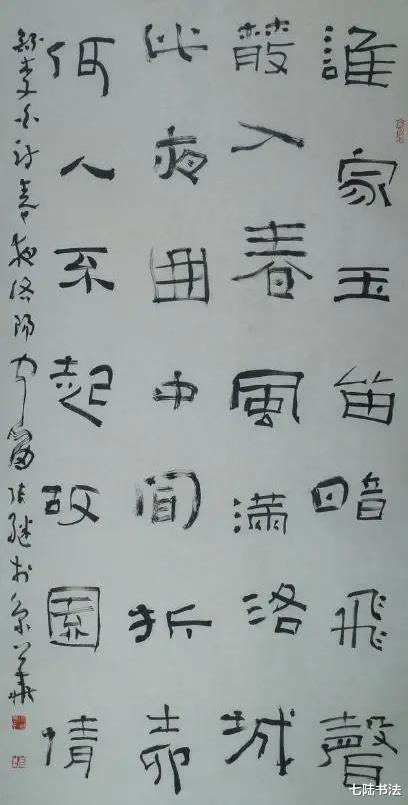 誰家玉笛暗飛聲
散入春風滿洛城
此夜曲中聞折柳
何人不起故園情
錄李白詩春夜洛陽 張繼於京華
七陆书法